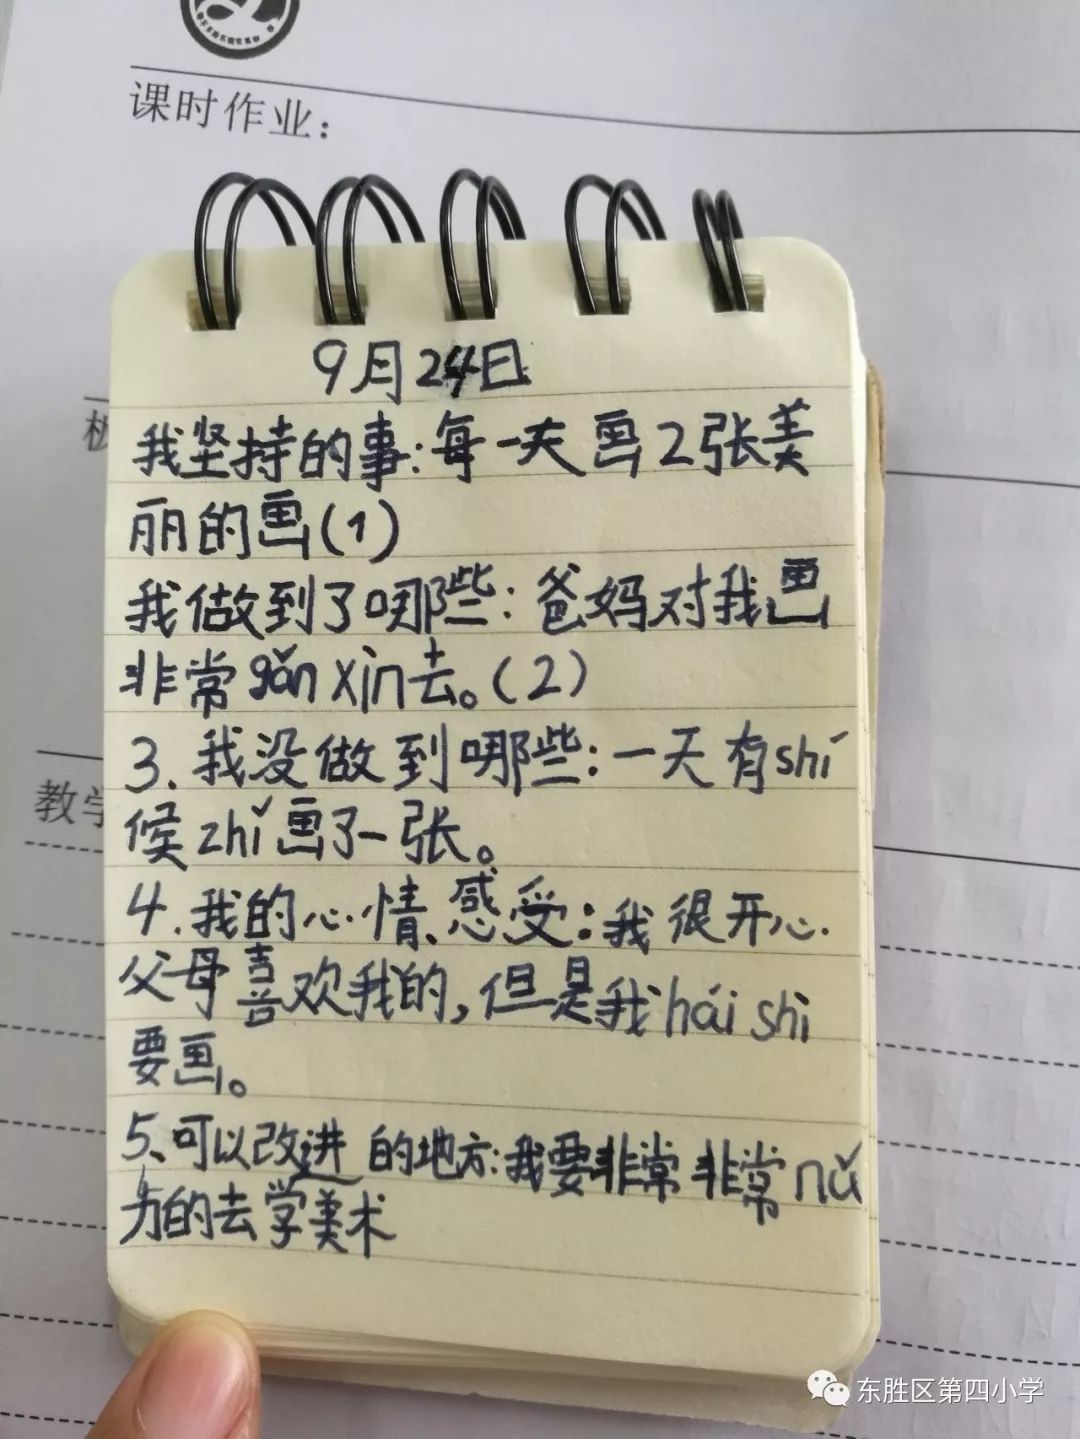 课时作业：
9月24日
我坚持的事：每一天画2张美
丽的画(1)
我做到了哪些：爸妈对我画
非常gǎn xìn去。(2)
3.我没做到哪些：一天有shí
候zhǐ画了一张。
4.我的心情、感受：我很开心.
父母喜欢我的,但是我hái shi
要画。
5、可以改进的地方：我要非常非常nǔ
力的去学美术
教学
东胜区第四小学